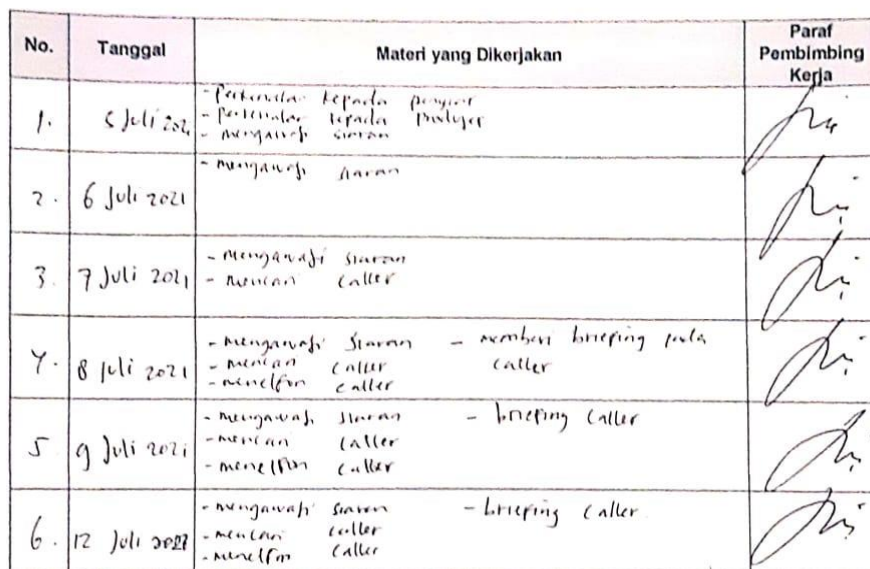 No. Tanggal Materi yang Dikerjakan Paraf Pembimbing Kerja
1. 5 Juli 2021
- Perkenalan kepada penyiar
- Perkenalan kepada produser
- mengawasi siaran
2. 6 Juli 2021
- mengawasi siaran
3. 7 Juli 2021
- mengawasi siaran
- mencari caller
4. 8 Juli 2021
- mengawasi siaran - memberi briefing pada
- mencari caller caller
- menelfon caller
5 9 Juli 2021
- mengawasi siaran - briefing caller
- mencari caller
- menelfon caller
6. 12 Juli
- mengawasi siaran - briefing caller
- mencari caller
- menelfon caller